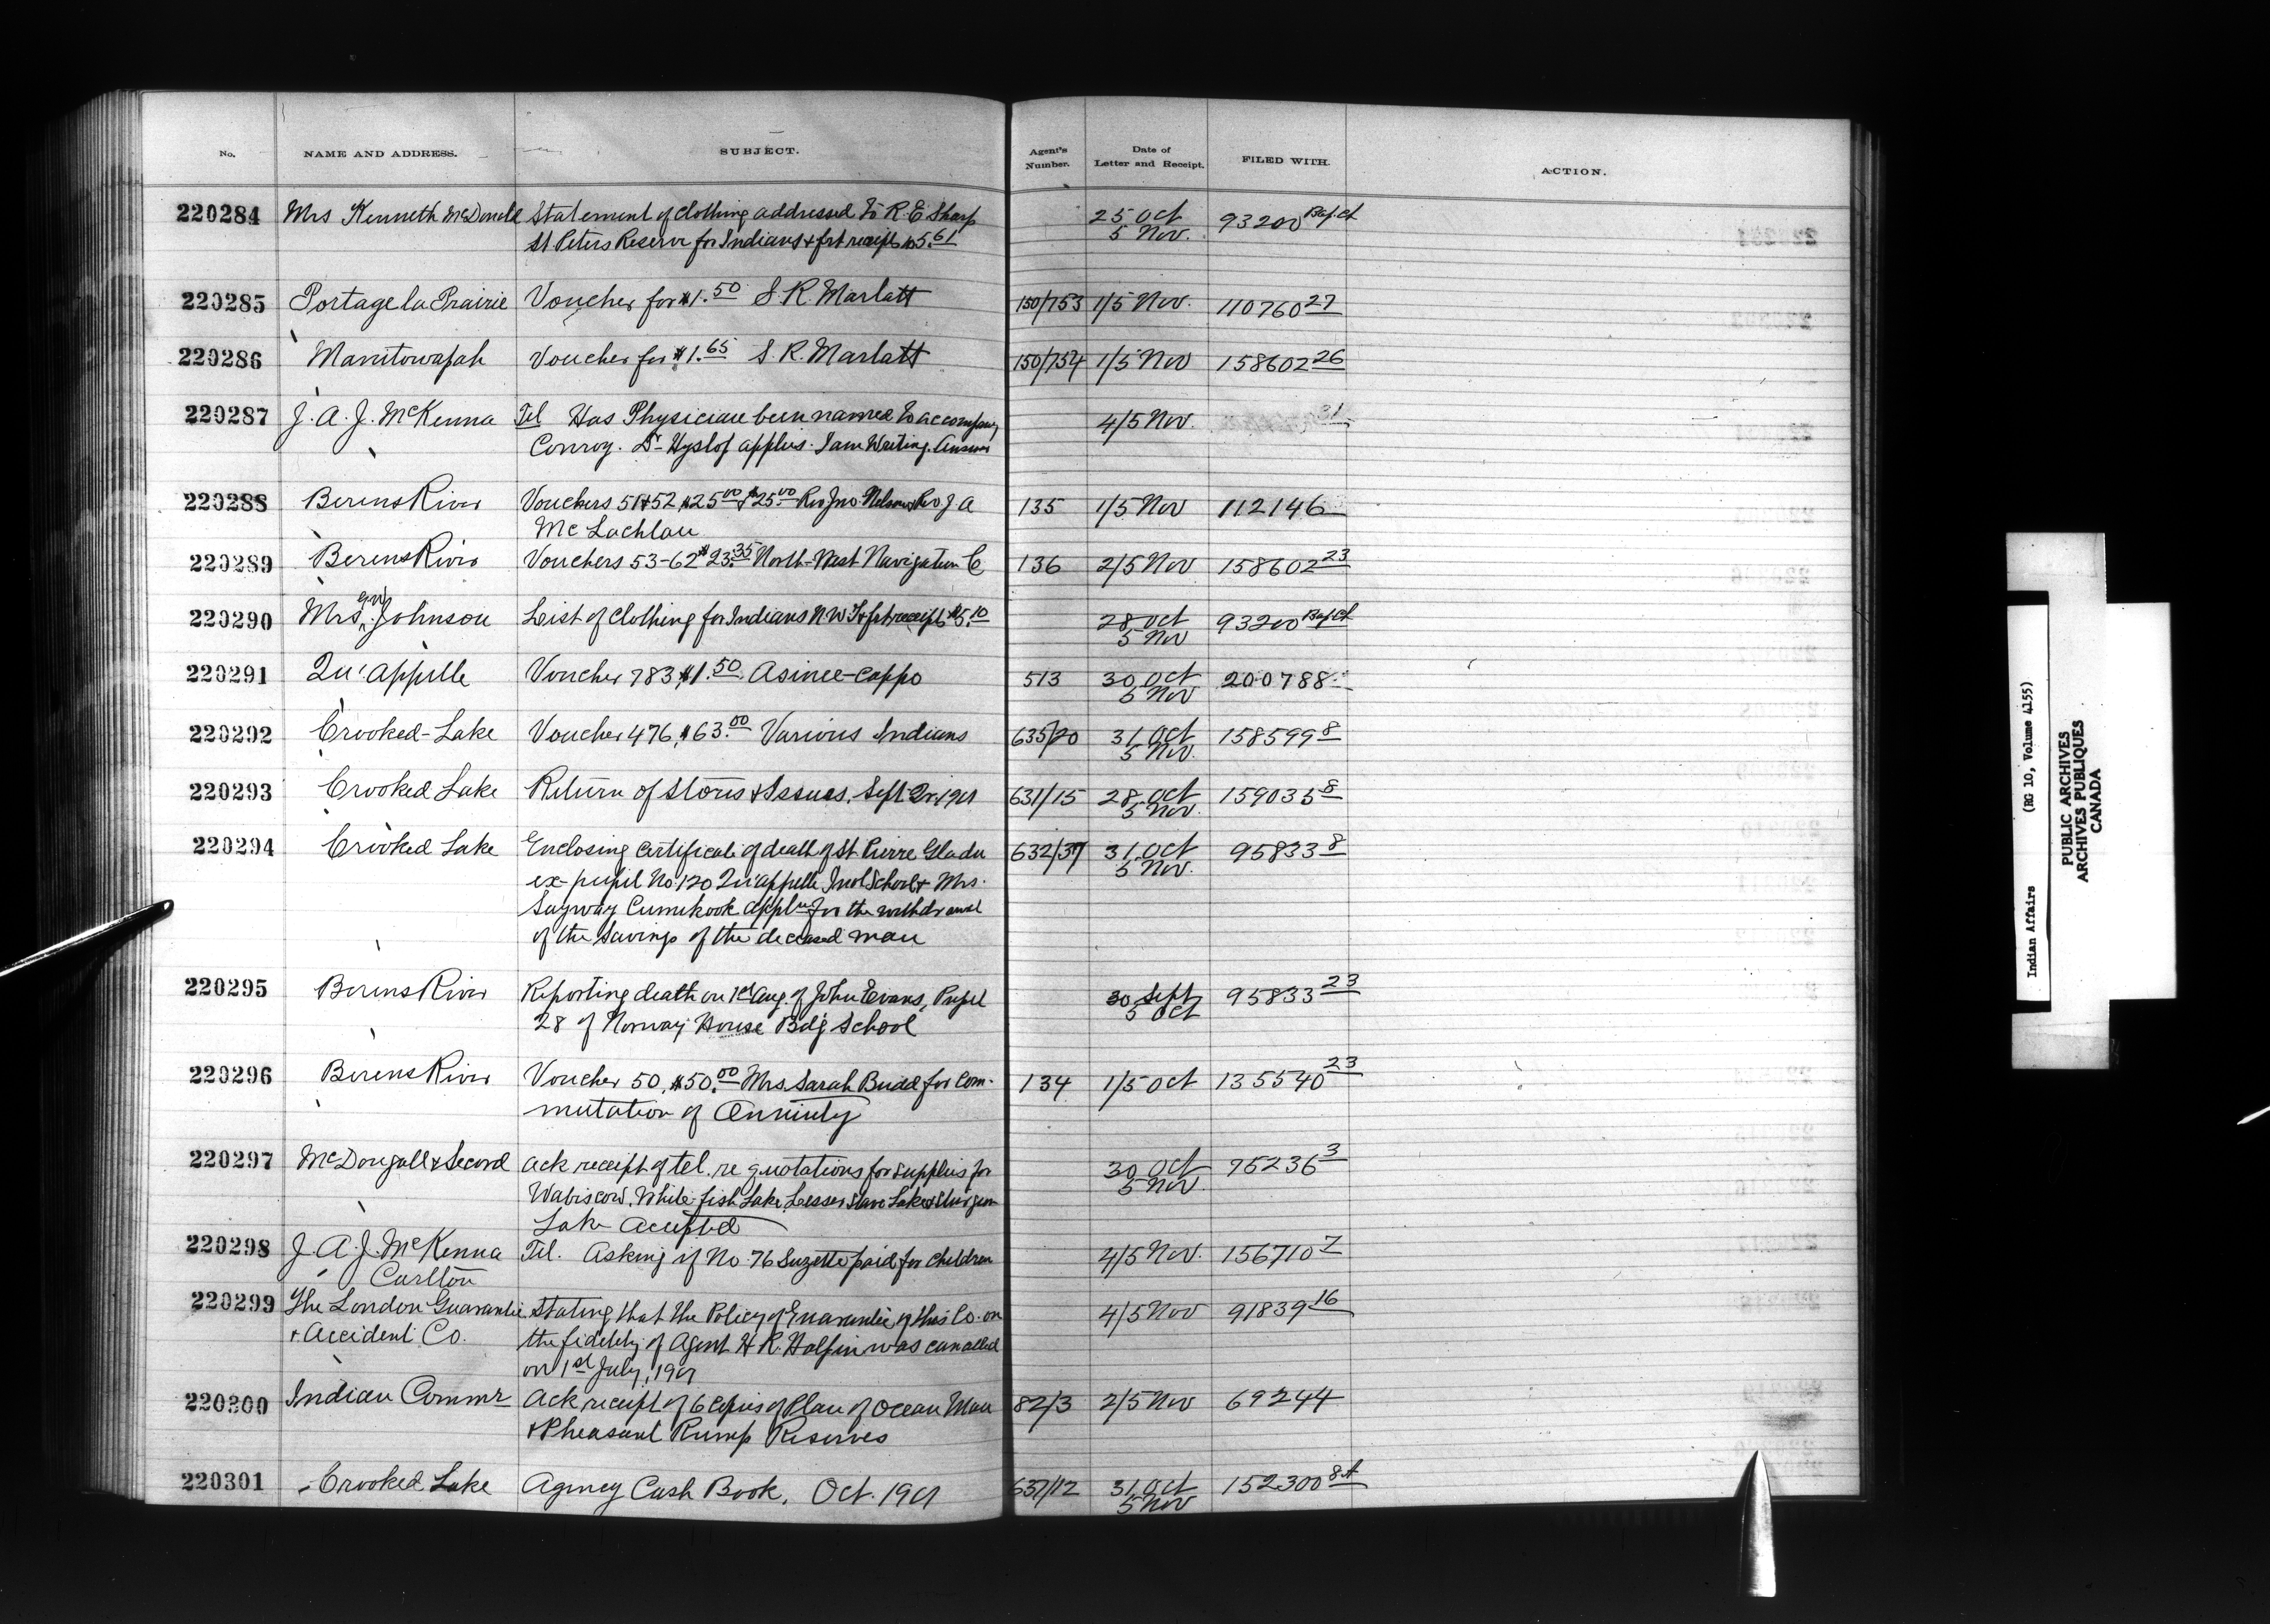 No. NAME AND ADDRESS. SUBJECT. Agent's Number. Date of Letter and Receipt. FILED WITH. ACTION.
220284 Mrs Kenneth McDonald Statement of Clothing addressed to R. E. Sharp 25 Oct 93200
St Peters Reserve for Indians & frt receipt $5.61 5 Nov.
220285 Portage la Prairie Voucher for $1.50 S. R. Marlatt 150/753 1/5 Nov. 110760 27
220286 Manitowapah Voucher for $1.65 S. R. Marlatt 150/754 1/5 Nov 158602 26
220287 J. A. J. McKenna Tel Has Physician been named to accompany 4/5 Nov. 31
Conroy. Dr Hyslop applies. I am Writing. Answer
220288 Berens River Vouchers 51&52 $25.00 & $25.00 Rev Jno Nelson & Rev J. A 135 1/5 Nov 112146
McLachlan
220289 Berens River Vouchers 53-62 $23.35 North-West Navigation C 136 2/5 Nov 158602 23
220290 Mrs Johnson List of Clothing for Indians N.W.T & frt receipt $5.10 28 Oct 93200
5 Nov
220291 Qu'appelle Voucher 783, $1.50. Asinee-cappo 513 30 Oct 200788
5 Nov
220292 Crooked-Lake Voucher 476, $63.00 Various Indians 635/20 31 Oct 158599 8
5 Nov.
220293 Crooked Lake Return of Stores & Issues, Sept Qr. 1901 631/15 28 Oct 159035 8
5 Nov.
220294 Crooked Lake Enclosing Certificate of death of St Pierre Gladu 632/37 31 Oct 95833 8
ex-pupil No 120 Qu'appelle Indl School & Mrs. 5 Nov.
Sayway Cumekook for the withdrawal
of the savings of the deceased man
220295 Berens River Reporting death on 1st Aug. of John Evans, Pupil 30 Sept 95833 23
28 of Norway House Bdg School 5 Oct
220296 Berens River Voucher 50, $50.00 Mrs. Sarah Budd for Com- 134 1/5 Oct 135540 23
mutation of Annuity
220297 McDougall & Secord Ack receipt of tel. re quotations for supplies for 30 Oct 75236 3
Wabiscow, White fish Lake, Lesser Slave Lake & Sturgeon 5 Nov.
Lake Accepted
220298 J. A. J. McKenna Tel. Asking if No 76 Suzette paid for children 4/5 Nov. 156710 7
Carlton
220299 The London Guarantee Stating that the Policy of Guarantee of this Co. on 4/5 Nov 91839 16
& Accident Co. the fidelity of Agent H. R. Halpin was cancelled
on 1st July, 1901
220300 Indian Commr Ack receipt of 6 Copies of Plan of Ocean Man 82/3 2/5 Nov 69244
& Pheasant Rump Reserves
220301 Crooked Lake Agency Cash Book, Oct. 1901 637/12 31 Oct 152300
5 Nov
Indian Affairs (RG 10, Volume 4155)
PUBLIC ARCHIVES
ARCHIVES PUBLIQUES
CANADA